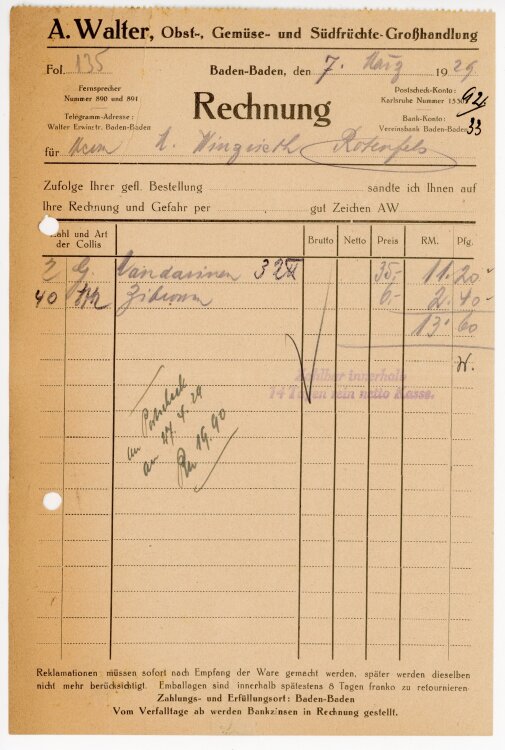 A. Walter, Obst-, Gemüse- und Südfrüchte-Großhandlung
Fol. 135 Baden-Baden, den 7. März 1929
Fernsprecher
Nummer 890 und 891
Postscheck-Konto:
Karlsruhe Nummer
Rechnung
Telegramm-Adresse:
Walter Erwinstr. Baden-Baden
Bank-Konto:
Vereinsbank Baden-Baden
92
33
für Rotenfels
Zufolge Ihrer gefl. Bestellung sandte ich Ihnen auf
Ihre Rechnung und Gefahr per gut Zeichen AW
Zahl und Art
der Collis
Brutto Netto Preis RM. Pfg.
2 G. Mandarinen 32 35,- 11.20
40 Zitronen 6,- 2.40
13.60
Zahlbar innerhalb
14 Tagen rein netto Kasse.
Postscheck
am 27.4.29
19.90
Reklamationen müssen sofort nach Empfang der Ware gemacht werden, später werden dieselben
nicht mehr berücksichtigt. Emballagen sind innerhalb spätestens 8 Tagen franko zu retournieren
Zahlungs- und Erfüllungsort: Baden-Baden
Vom Verfalltage ab werden Bankzinsen in Rechnung gestellt.